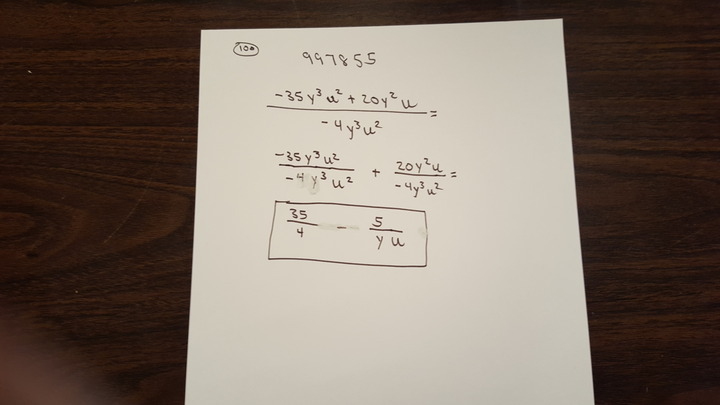 100
997855
-35y³u² + 20y²u / -4y³u² =
-35y³u² / -4y³u² + 20y²u / -4y³u² =
35/4 - 5/yu